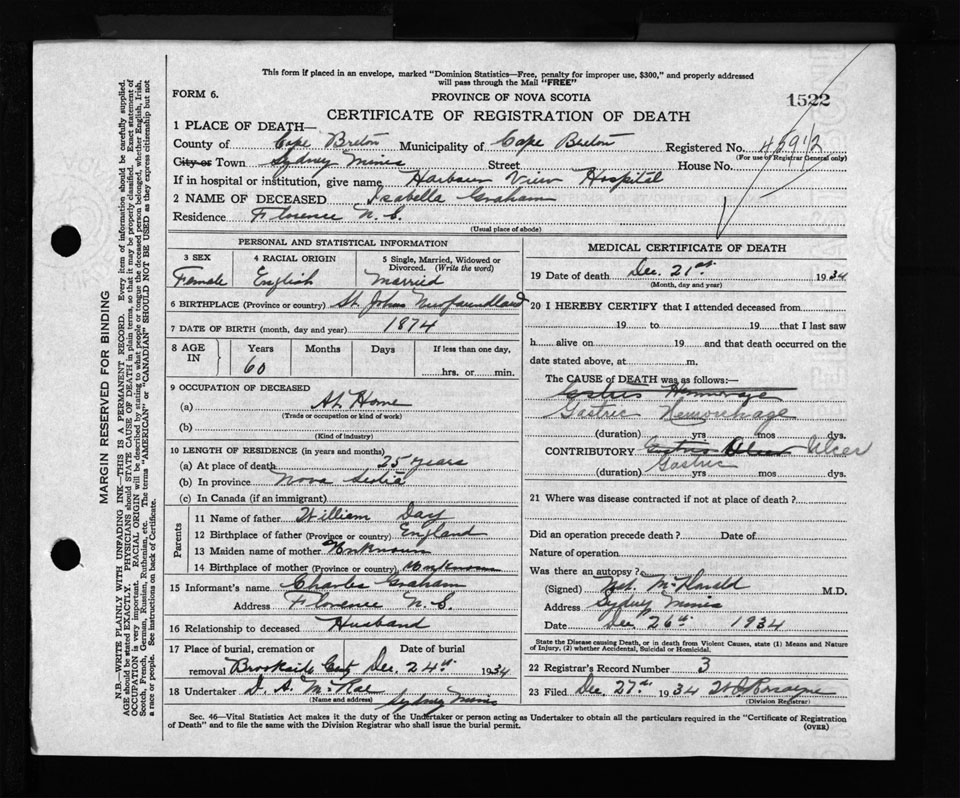 This form if placed in an envelope, marked "Dominion Statistics—Free, penalty for improper use, $300," and properly addressed
will pass through the Mail "FREE"
FORM 6.
PROVINCE OF NOVA SCOTIA
1522
CERTIFICATE OF REGISTRATION OF DEATH
1 PLACE OF DEATH—
County of Cape Breton Municipality of Cape Breton Registered No. 45912
(For use of Registrar General only)
City or Town Sydney Mines Street House No.
If in hospital or institution, give name Harbour View Hospital
2 NAME OF DECEASED Isabella Graham
Residence Florence N.S.
(Usual place of abode)
PERSONAL AND STATISTICAL INFORMATION
3 SEX 4 RACIAL ORIGIN 5 Single, Married, Widowed or
Divorced. (Write the word)
Female English Married
6 BIRTHPLACE (Province or country) St. Johns Newfoundland
7 DATE OF BIRTH (month, day and year) 1874
8 AGE IN Years Months Days If less than one day,
60 hrs. or min.
9 OCCUPATION OF DECEASED
(a) At Home
(Trade or occupation or kind of work)
(b)
(Kind of industry)
10 LENGTH OF RESIDENCE (in years and months)
(a) At place of death 25 years
(b) In province Nova Scotia
(c) In Canada (if an immigrant)
Parents
11 Name of father William Day
12 Birthplace of father (Province or country) England
13 Maiden name of mother Unknown
14 Birthplace of mother (Province or country) Unknown
15 Informant's name Charles Graham
Address Florence N.S.
16 Relationship to deceased Husband
17 Place of burial, cremation or Date of burial
removal Brookside Cmty Dec. 24th 1934
18 Undertaker McRae
(Name and address) Sydney Mines
MEDICAL CERTIFICATE OF DEATH
19 Date of death Dec. 21st 1934
(Month, day and year)
20 I HEREBY CERTIFY that I attended deceased from
19 to 19 that I last saw
h alive on 19 and that death occurred on the
date stated above, at m.
The CAUSE of DEATH was as follows:—
Gastric Hemorrhage
(duration) yrs mos dys.
CONTRIBUTORY Ulcer
Gastric
(duration) yrs mos dys.
21 Where was disease contracted if not at place of death?
Did an operation precede death? Date of
Nature of operation
Was there an autopsy?
(Signed) M.D.
Address Sydney Mines
Date Dec 26th 1934
State the Disease causing Death, or in death from Violent Causes, state (1) Means and Nature
of Injury, (2) whether Accidental, Suicidal or Homicidal.
22 Registrar's Record Number 3
23 Filed Dec. 27th 1934
(Division Registrar)
Sec. 46—Vital Statistics Act makes it the duty of the Undertaker or person acting as Undertaker to obtain all the particulars required in the "Certificate of Registration
of Death" and to file the same with the Division Registrar who shall issue the burial permit.
(OVER)
MARGIN RESERVED FOR BINDING
N.B.—WRITE PLAINLY WITH UNFADING INK—THIS IS A PERMANENT RECORD. Every item of information should be carefully supplied.
AGE should be stated EXACTLY. PHYSICIANS should STATE CAUSE OF DEATH in plain terms, so that it may be properly classified. Exact statement of
OCCUPATION is very important. RACIAL ORIGIN will be described by stating to what people or tongue the deceased person belonged, whether English, Irish,
Scotch, French, German, Russian, Ruthenian, etc. The terms "AMERICAN" or "CANADIAN" SHOULD NOT BE USED as they express citizenship but not
a race or people. See instructions on back of Certificate.